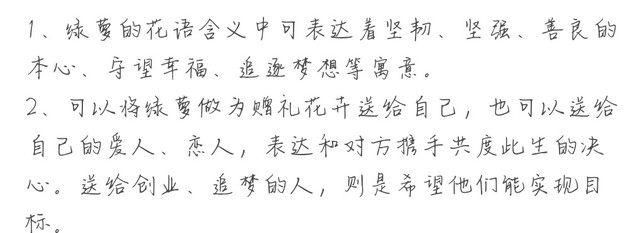 1、绿萝的花语含义中可表达着坚韧、坚强、善良的
本心、守望幸福、追逐梦想等寓意。
2、可以将绿萝做为赠礼花卉送给自己，也可以送给
自己的爱人、恋人，表达和对方携手共度此生的决
心。送给创业、追梦的人，则是希望他们能实现目
标。